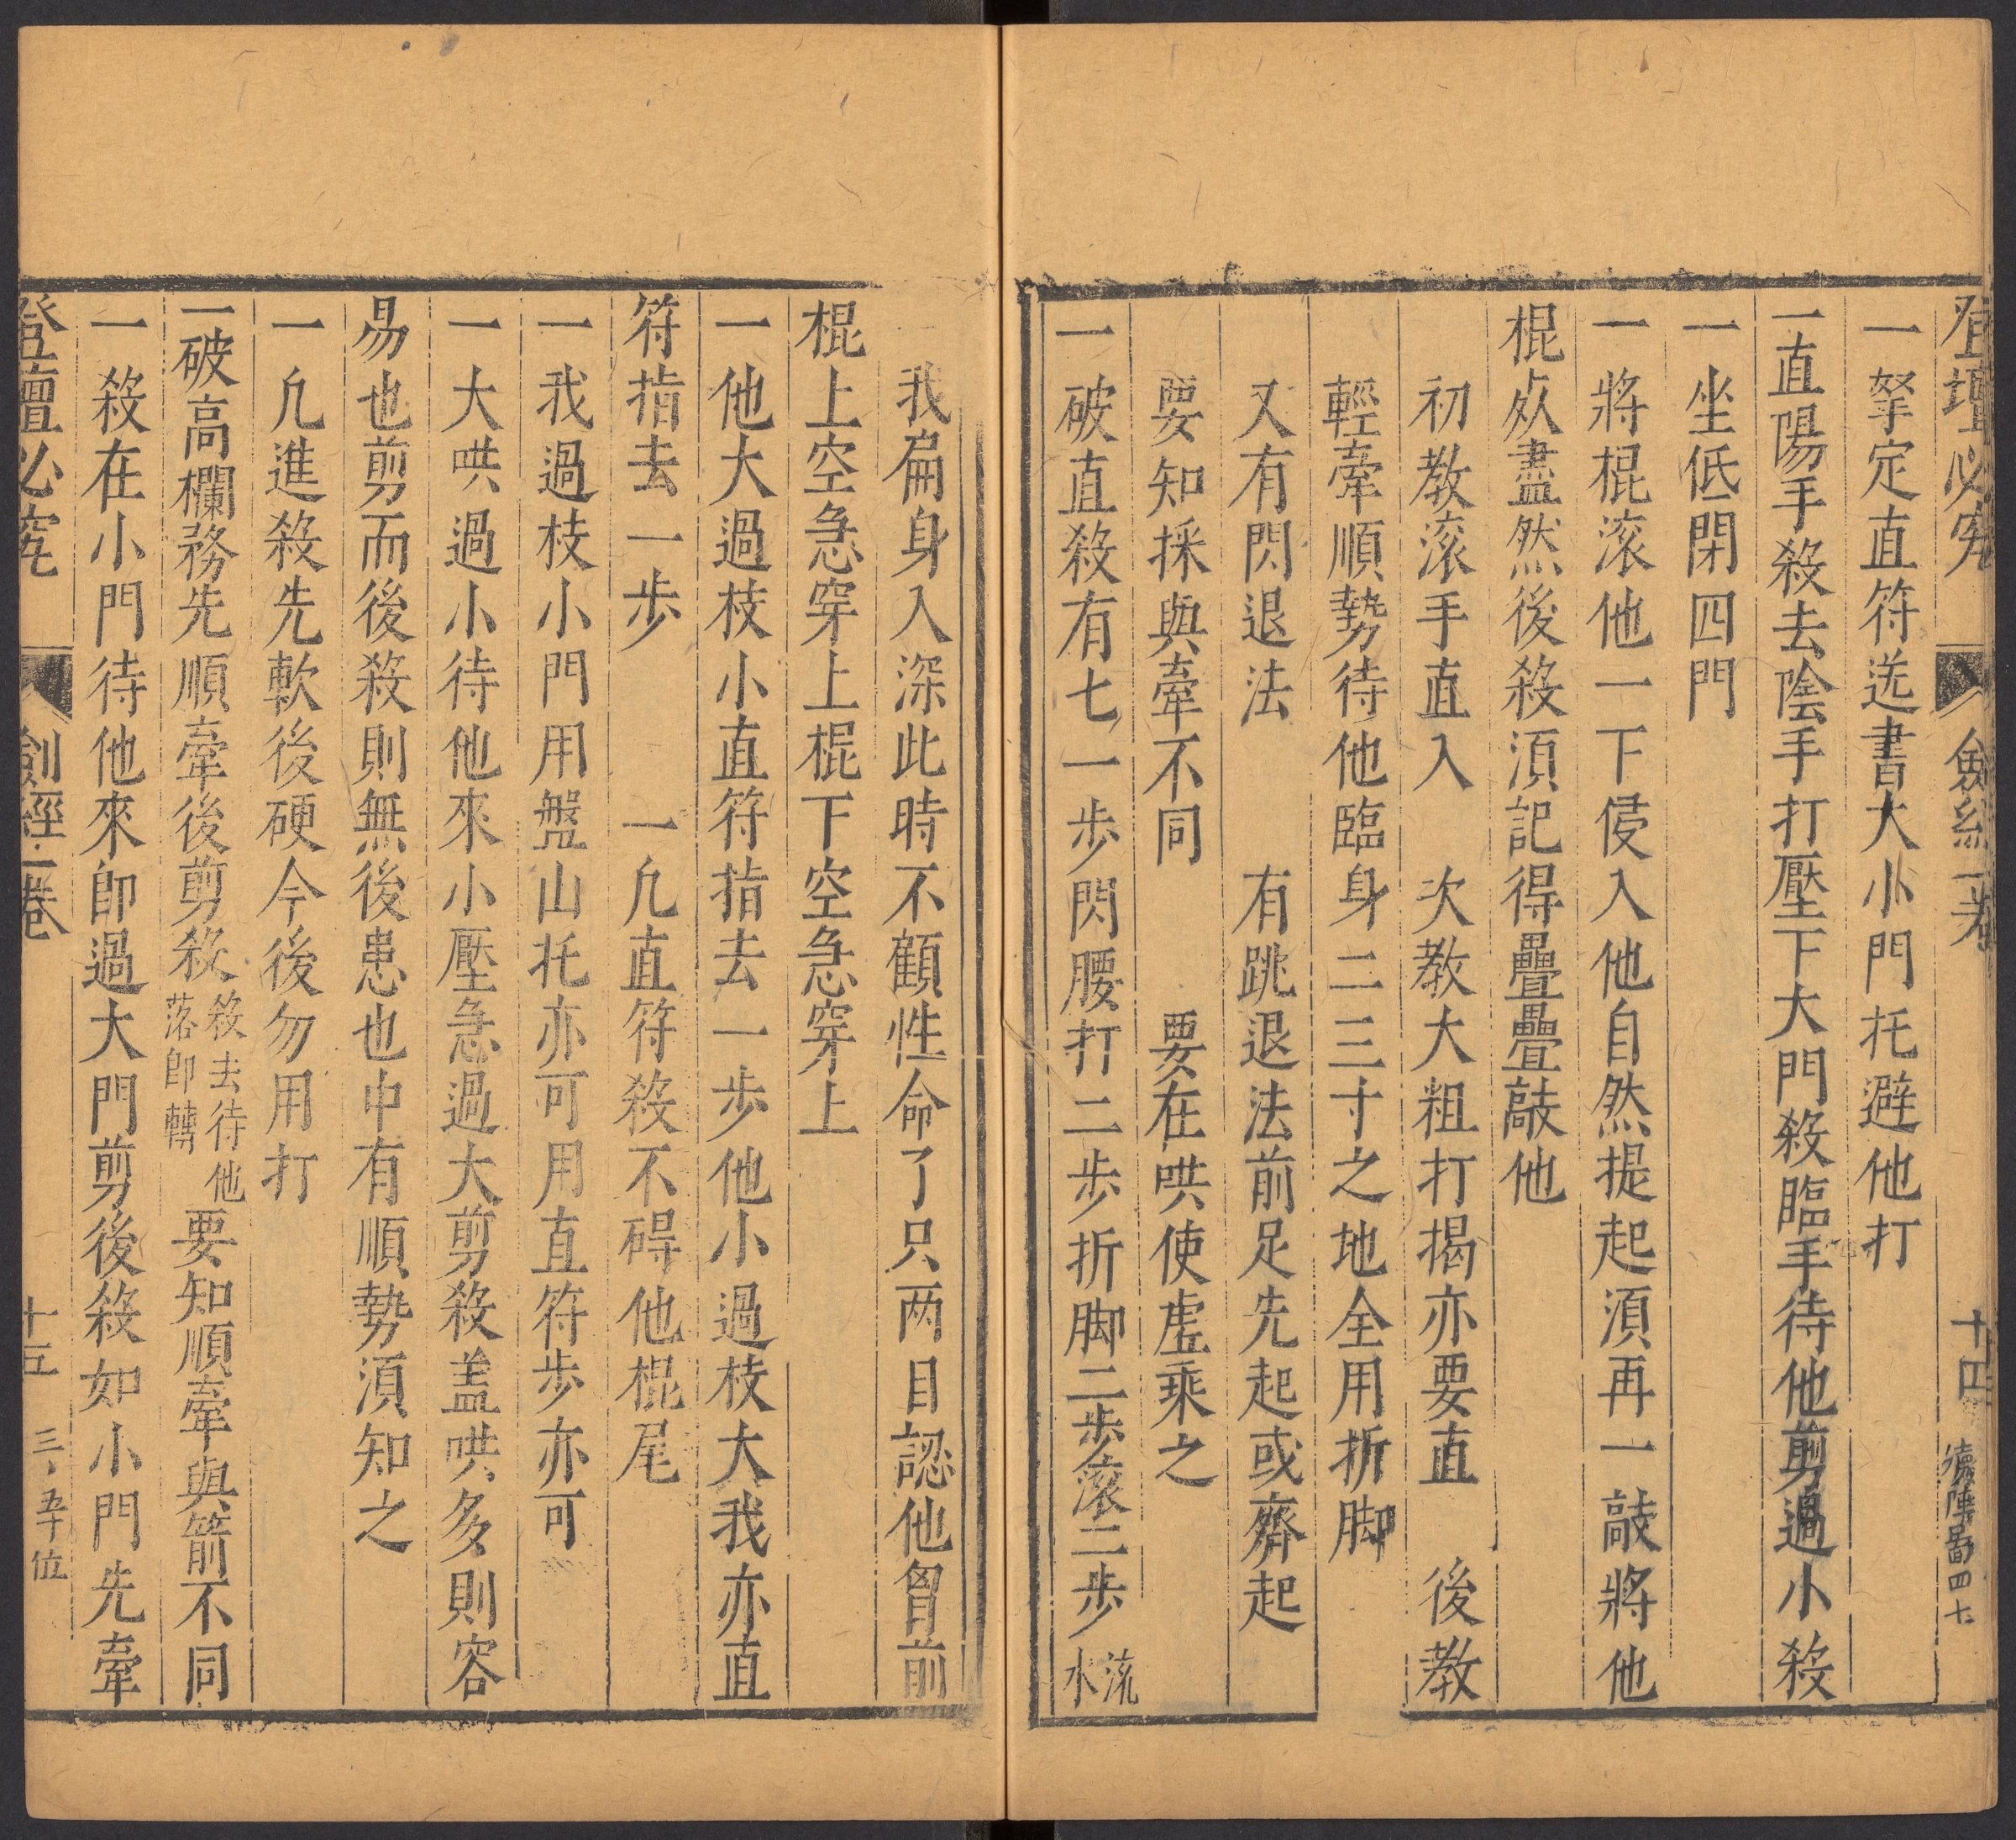 登壇必究 劍經一卷 十四
一拏定直符送書大小門托避他打
一直陽手殺去陰手打壓下大門殺臨手待他剪過小殺
一坐低閉四門
一將棍滚他一下侵入他自然提起湏再一敲將他
棍敲盡然後殺湏記得疊疊敲他
初教滚手直入 次教大粗打揭亦要直 後教
輕牽順勢待他臨身二三寸之地全用折脚
又有閃退法 有跳退法前足先起或齊起
要知採與牽不同 要在哄使虗乘之
一破直殺有七一步閃腰打二步折脚二步滚二步流水
我扁身入深此時不顧性命了只两目認他胷前
棍上空急穿上棍下空急穿上
一他大過枝小直符指去一步他小過枝大我亦直
符指去一步 一凢直符殺不碍他棍尾
一我過枝小門用盤山托亦可用直符步亦可
一大哄過小待他來小壓急過大剪殺盖哄多則容
易也剪而後殺則無後患也中有順勢湏知之
一凢進殺先軟後硬今後勿用打
一破高欄務先順牽後剪殺殺去待他落即轉要知順牽與箭不同
一殺在小門待他來即過大門剪後殺如小門先牽
登壇必究 劍經一卷 十五 三五十位